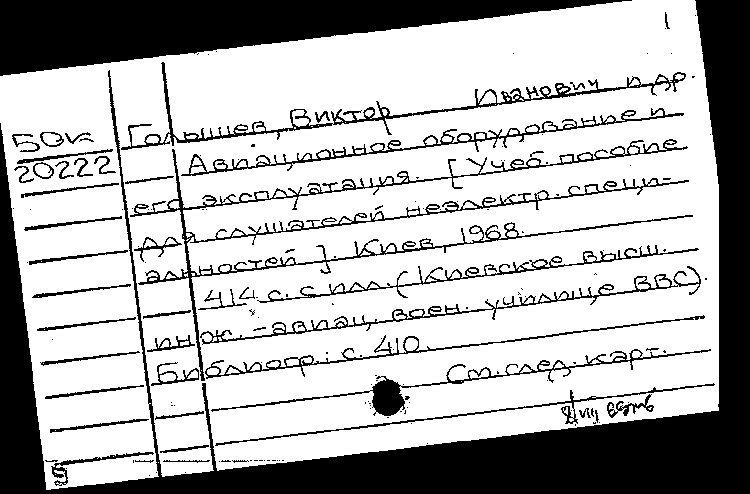 1
50к Голышев, Виктор Иванович и др.
20222 Авиационное оборудование и
его эксплуатация. [Учеб. пособие
для слушателей неэлектр. специ-
альностей]. Киев, 1968.
414 с. с илл. (Киевское высш.
инж.-авиац. воен. училище ВВС).
Библиогр.: с. 410.
См. след. карт.